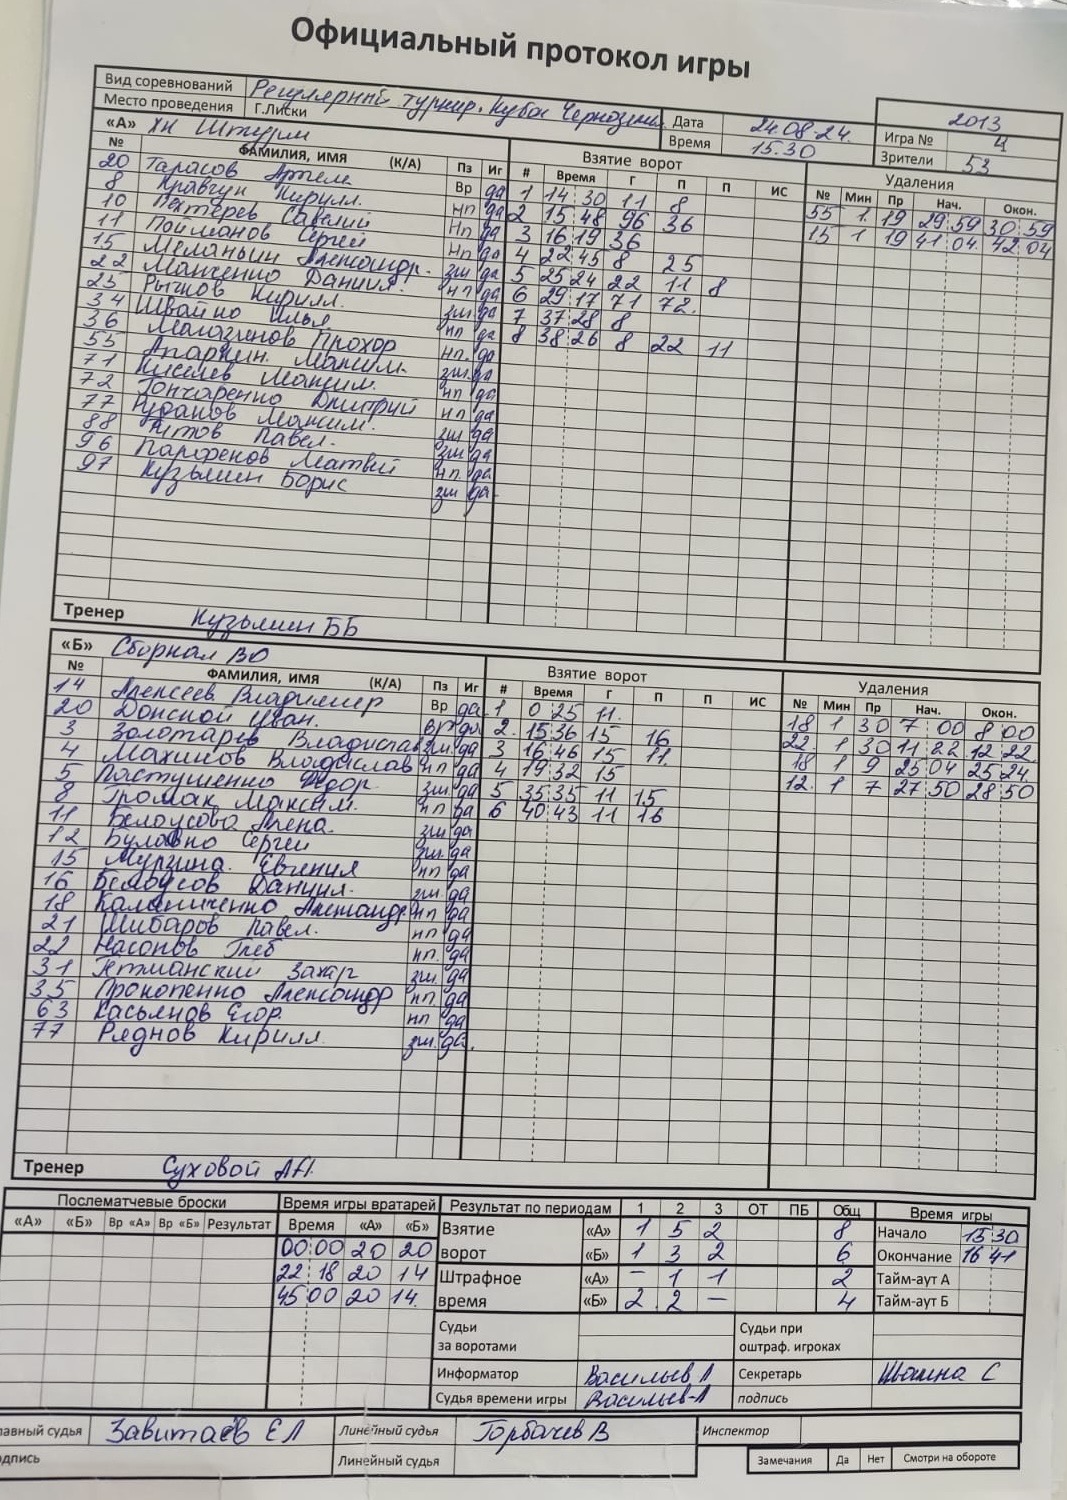 Официальный протокол игры
Вид соревнований Регулярный турнир. Кубок Черноземья Дата 24.08.24. 2013
Место проведения Г.Лиски Время 15.30 Игра № 4
Зрители 53
«А» ХК Штурм Взятие ворот Удаления
№ ФАМИЛИЯ, ИМЯ (К/А) Пз Иг # Время Г П П ИС № Мин Пр Нач. Окон.
20 Тарасов Артем Вр да 1 14 30 11 8 55 1 19 29 59 30 59
8 Кравчук Кирилл. нп да 2 15 48 96 36 15 1 19 41 04 42 04
10 Пехтерев Савелий нп да 3 16 19 36
11 Пойманов Сергей нп да 4 22 45 8 25
15 Меланьин Александр. зщ да 5 25 24 22 11 8
22 Манченко Даниил. нп да 6 29 17 71 72.
25 Рычков Кирилл. зщ да 7 37 28 8
34 Швайко Илья нп да 8 38 26 8 22 11
36 Малозинов Прохор нп. да
55 Апаркин Максим. зщ да
71 Киселев Максим. нп да
72 Гончаренко Дмитрий нп да
77 Рудаков Максим. зщ да
88 Китов Павел. зщ. да
96 Парфенов Матвей нп. да
97 Кузьмин Борис зщ да
Тренер Кузьмин ББ
«Б» Сборная ВО Взятие ворот Удаления
№ ФАМИЛИЯ, ИМЯ (К/А) Пз Иг # Время Г П П ИС № Мин Пр Нач. Окон.
14 Алексеев Владимир Вр да 1 0 25 11. 18 1 30 7 00 8 00
20 Донской Иван. Вр да 2. 15 36 15 16 22. 1 30 11 22 12 22
3 Золотарев Владислав зщ. да 3 16 46 15 11 18 1 9 25 04 25 24
4 Махинов Владислав нп да 4 19 32 15 12. 1 7 27 50 28 50
5 Пастушенко Федор. зщ да 5 35 35 11 15
8 Громак Максим. нп да 6 40 43 11 16
11 Белоусова Алена. зщ да
12 Булавко Сергей зщ. да
15 Мурзина Евгения нп да
16 Белоусов Даниил. зщ. да
18 Калиниченко Александр нп да
21 Шибаров Павел. нп да
22 Насонов Глеб нп. да
31 Гетманский Захар зщ. да
35 Прокопенко Александр нп да
63 Касьянов Егор нп да
77 Ряднов Кирилл зщ. да.
Тренер Суховой АА.
Послематчевые броски Время игры вратарей Результат по периодам 1 2 3 ОТ ПБ Общ Время игры
«А» «Б» Вр «А» Вр «Б» Результат Время «А» «Б» Взятие «А» 1 5 2 8 Начало 15 30
00:00 20 20 ворот «Б» 1 3 2 6 Окончание 16 41
22 18 20 14 Штрафное «А» – 1 1 2 Тайм-аут А
45 00 20 14. время «Б» 2 2 – 4 Тайм-аут Б
Судьи за воротами Судьи при оштраф. игроках
Информатор Васильев Л Секретарь С
Судья времени игры Васильев Л подпись
лавный судья Завитаев ЕЛ Линейный судья Горбачев В Инспектор
одпись Линейный судья Замечания Да Нет Смотри на обороте